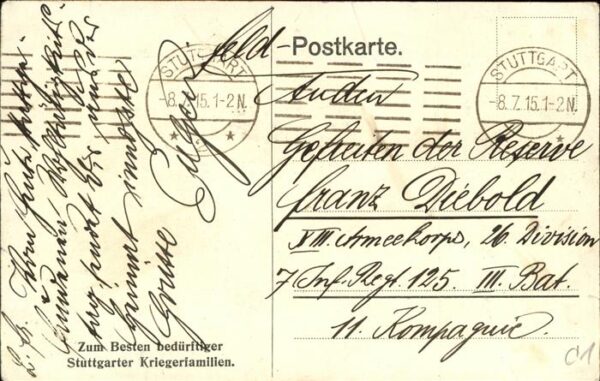 Feld-Postkarte.
STUTTGART
-8.7.15.1-2N.
STUTTGART
-8.7.15.1-2N.
An den
Gefreiten der Reserve
Franz Diebold
XIII. Armeekorps, 26. Division
7 Inf. Regt. 125. III. Bat.
11. Kompagnie.
L. B.
sendet Dir aus der
Heimat innigste
Grüsse Eugen
Zum Besten bedürftiger
Stuttgarter Kriegerfamilien.
01